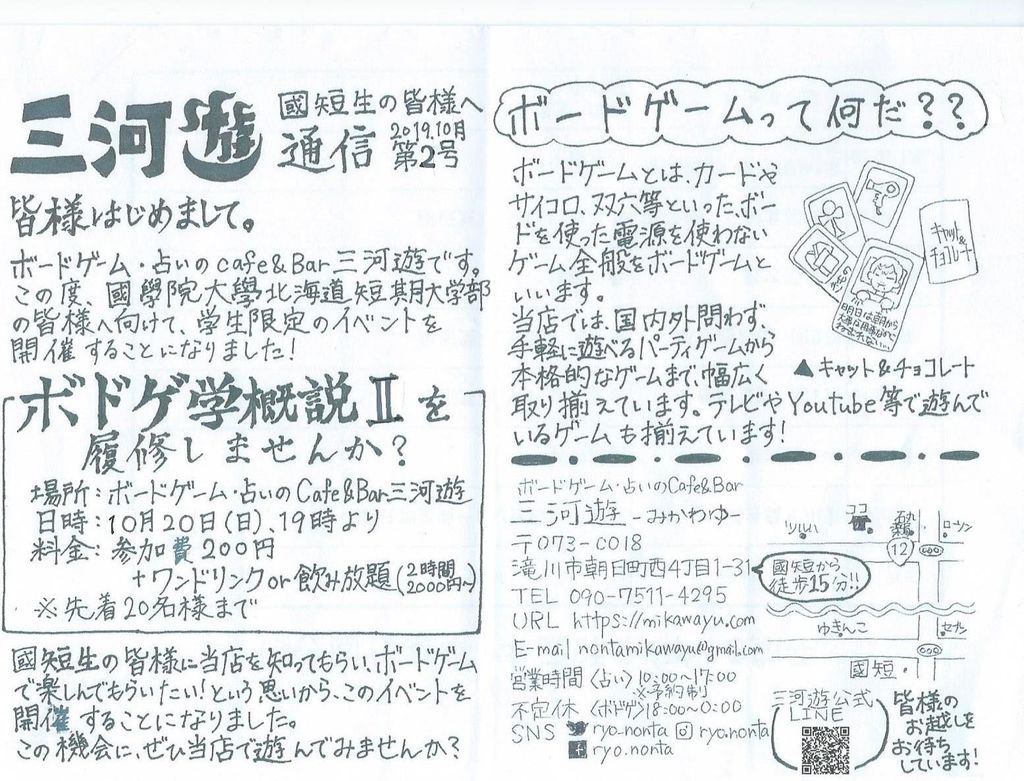 三河遊
國短生の皆様へ
通信
2019.10月
第2号
皆様はじめまして。
ボードゲーム・占いのcafe&Bar三河遊です。
この度、國學院大學北海道短期大学部
の皆様へ向けて、学生限定のイベントを
開催することになりました!
ボドゲ学概説Ⅱを
履修しませんか?
場所:ボードゲーム・占いのCafe&Bar三河遊
日時:10月20日(日)19時より
料金:参加費200円
+ワンドリンクor飲み放題(2時間2000円〜)
※先着20名様まで
國短生の皆様に当店を知ってもらい、ボードゲーム
で楽しんでもらいたい!という思いから、このイベントを
開催することになりました。
この機会に、ぜひ当店で遊んでみませんか?
ボードゲームって何だ??
ボードゲームとは、カードや
サイコロ、双六等といった、ボー
ドを使った電源を使わない
ゲーム全般をボードゲームと
いいます。
当店では、国内外問わず、
手軽に遊べるパーティゲームから
本格的なゲームまで、幅広く
取り揃えています。テレビやYoutube等で遊んで
いるゲームも揃えています!
キャット&チョコレート
明日は朝から
▲キャット&チョコレート
ボードゲーム・占いのCafe&Bar
三河遊-みかわゆー-
〒073-0018
滝川市朝日町西4丁目1-31
TEL 090-7511-4295
URL https://mikawayu.com
E-mail nontamikawayu@gmail.com
営業時間〈占い〉10:00〜17:00
※予約制
不定休〈ボドゲ〉18:00〜0:00
SNS ryo.nonta ryo.nonta
ryo.nonta
ツルハ
ココ
ローソン
12
國短から
徒歩15分!!
ゆきんこ
セブン
國短
三河遊公式
LINE
皆様の
お越しを
お待ち
しています!